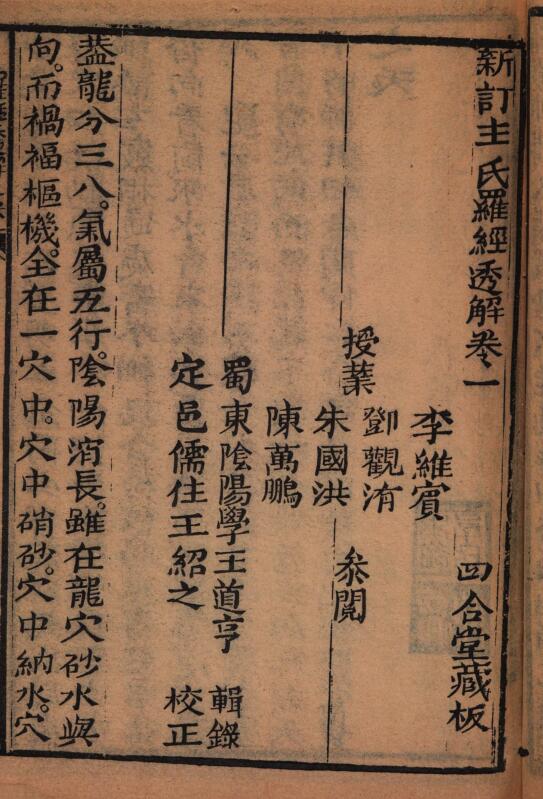 新訂主氏羅經透解卷一
四合堂藏板
李維賓
授業 鄧觀洧 叅閱
朱國洪
陳萬鵬
蜀東陰陽學王道亨 輯錄
定邑儒住王紹之 校正
葢龍分三八。氣屬五行。陰陽消長。雖在龍穴砂水與
向。而禍福樞機。全在一穴中。穴中硝砂。穴中納水。穴